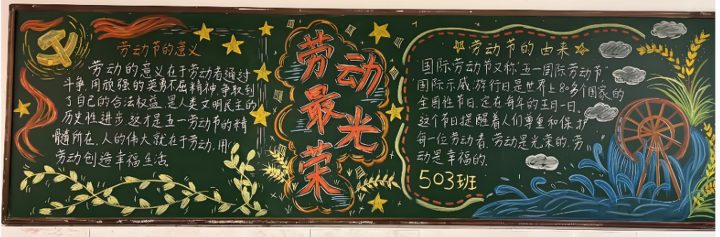 劳动节的意义
劳动的意义在于劳动者通过
斗争,用顽强的英勇不屈精神,争取到
了自己的合法权益.是人类文明民主的
历史性进步.这才是五一劳动节的精
髓所在,人的伟大就在于劳动,用
劳动创造幸福生活
劳动
最光
荣
劳动节的由来
国际劳动节又称"五一国际劳动节,
国际示威游行日,是世界上80多个国家的
全国性节日.定在每年的五月一日.
这个节日提醒着人们尊重和保护
每一位劳动者.劳动是光荣的,劳
动是幸福的.
503班